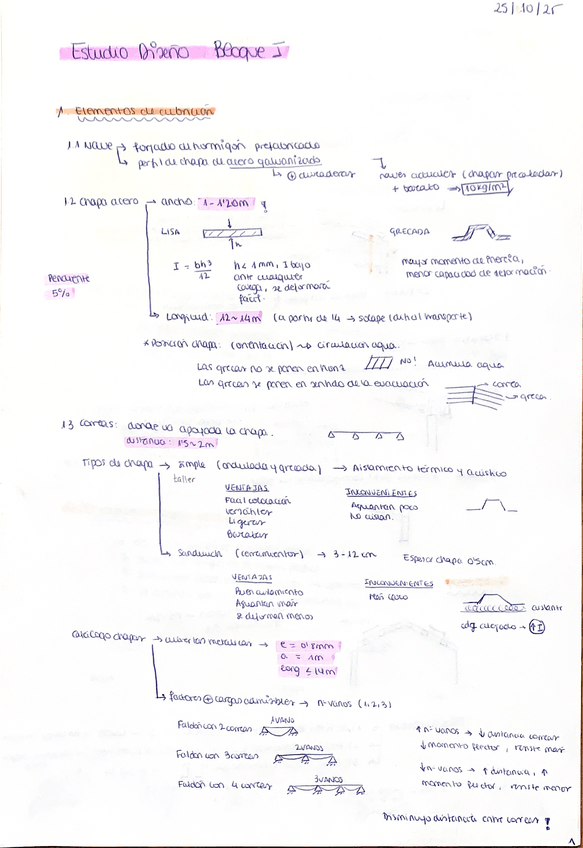 25/10/25
Estudio Diseño Bloque I
1 Elementos de cubrición
1.1 Nave → forjado de hormigón prefabricado
→ perfil de chapa de acero galvanizado
→ ⊕ duraderas
naves actuales (chapas prelacadas)
+ barato → 10kg/m2
1.2 chapa acero → ancho: 1-1'20m
LISA
GRECADA
I = bh³/12
h< 1mm, I bajo
ante cualquier
carga, se deformará
fácil.
mayor momento de inercia,
menor capacidad de deformación
Pendiente
5%
→ Longitud: 12~14m (a partir de 14 → solape (dificil transporte)
* Posición chapa: (orientación) → circulación agua.
Las grecas no se ponen en horiz NO! Acumula agua
Las grecas se ponen en sentido de la evacuación
→ correa
→ greca
1.3 correas: donde va apoyada la chapa.
distancia: 1'5~2m
Tipos de chapa → simple (ondulada y grecada) → Aislamiento térmico y acústico
taller
VENTAJAS
INCONVENIENTES
Facil colocación
Aguantan poco
versátiles
No aislan.
Ligeras
Baratas
→ Sandwich (cerramientos) → 3-12cm Espesor chapa 0'5cm
VENTAJAS
INCONVENIENTES
Buen aislamiento
Más caro
Aguantan más
se deforman menos
aislante
cdg alejado → ↑I
catálogo chapas → cubiertas metálicas → e = 0'8mm
a = 1m
long ≤ 14m
→ factores ⊕ cargas admisibles → nº vanos (1,2,3)
Faldón con 2 correas 1VANO
Faldón con 3 correas 2VANOS
Faldón con 4 correas 3VANOS
↑ nº vanos → ↓ distancia correas
↓ momento flector, resiste más
↓ nº vanos → ↑ distancia, ↑
momento flector, resiste menor
Disminuyo distancia entre correas !
1